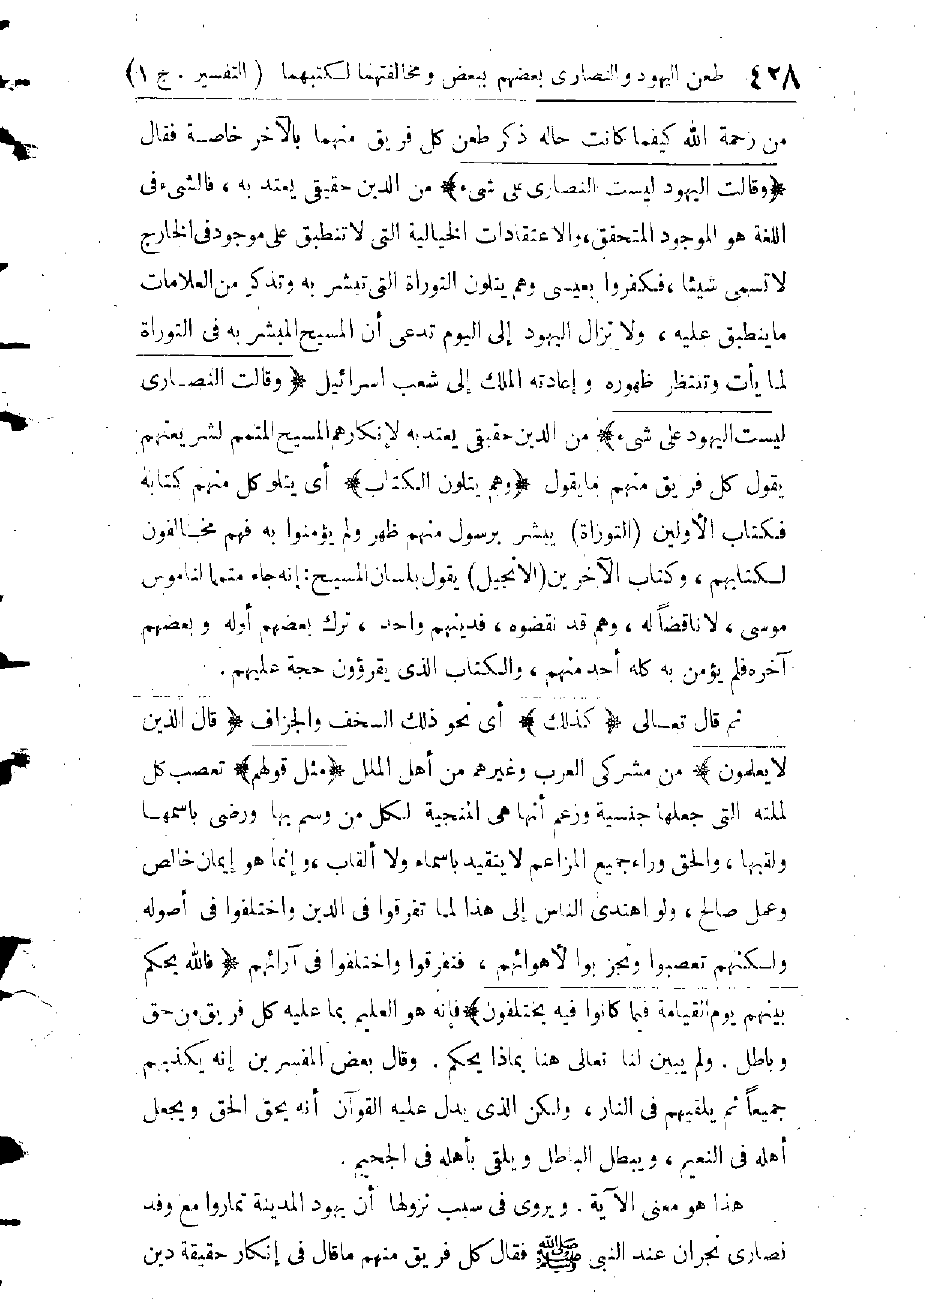 ٤٢٨ طعن اليهود والنصارى بعضهم ببعض ومخالفتهما لكتبهما ( التفسير . ج ١ )
من رحمة الله كيفما كانت حاله ذكر طعن كل فريق منهما بالآخر خاصة فقال
﴿ وقالت اليهود ليست النصارى على شىء ﴾ من الدين حقيقى يعتد به ، فالشىء فى
اللغة هو الموجود المتحقق ، والاعتقادات الخيالية التى لا تنطبق على موجود فى الخارج
لا تسمى شيئا ، فكفروا بعيسى وهم يتلون التوراة التى تبشر به وتذكر من العلامات
ما ينطبق عليه ، ولا تزال اليهود إلى اليوم تدعى أن المسيح المبشر به فى التوراة
لما يأت وتنتظر ظهوره وإعادته الملك إلى شعب اسرائيل ﴿ وقالت النصارى
ليست اليهود على شىء ﴾ من الدين حقيقى يعتد به لإنكارهم المسيح المتمم لشريعتهم
يقول كل فريق منهم ما يقول ﴿ وهم يتلون الكتاب ﴾ أى يتلو كل منهم كتابه
فكتاب الأولين (التوراة) يبشر برسول منهم ظهر ولم يؤمنوا به فهم مخالفون
لكتابهم ، وكتاب الآخرين (الانجيل) يقول بلسان المسيح : إنه جاء متمما لناموس
موسى ، لا ناقضاً له ، وهم قد نقضوه ، فدينهم واحد ، ترك بعضهم أوله وبعضهم
آخره فلم يؤمن به كله أحد منهم ، والكتاب الذى يقرؤون حجة عليهم .
ثم قال تعالى ﴿ كذلك ﴾ أى نحو ذلك السخف والجزاف ﴿ قال الذين
لا يعلمون ﴾ من مشركى العرب وغيرهم من أهل الملل ﴿ مثل قولهم ﴾ تعصب كل
لملته التى جعلها جنسية وزعم أنها هى المنجية لكل من وسم بها ورضى باسمها
ولقبها ، والحق وراء جميع المزاعم لا يتقيد باسماء ولا ألقاب ، وإنما هو إيمان خالص
وعمل صالح ، ولو اهتدى الناس إلى هذا لما تفرقوا فى الدين واختلفوا فى أصوله
ولكنهم تعصبوا وتحزبوا لأهوائهم ، فتفرقوا واختلفوا فى آرائهم ﴿ فالله يحكم
بينهم يوم القيامة فيما كانوا فيه يختلفون ﴾ فإنه هو العليم بما عليه كل فريق من حق
وباطل . ولم يبين لنا تعالى هنا بماذا يحكم . وقال بعض المفسرين إنه يكذبهم
جميعاً ثم يلقيهم فى النار ، ولكن الذى يدل عليه القرآن أنه يحق الحق ويجعل
أهله فى النعيم ، ويبطل الباطل ويلقى بأهله فى الجحيم .
هذا هو معنى الآية . ويروى فى سبب نزولها أن يهود المدينة تماروا مع وفد
نصارى نجران عند النبى ﷺ فقال كل فريق منهم ما قال فى إنكار حقيقة دين